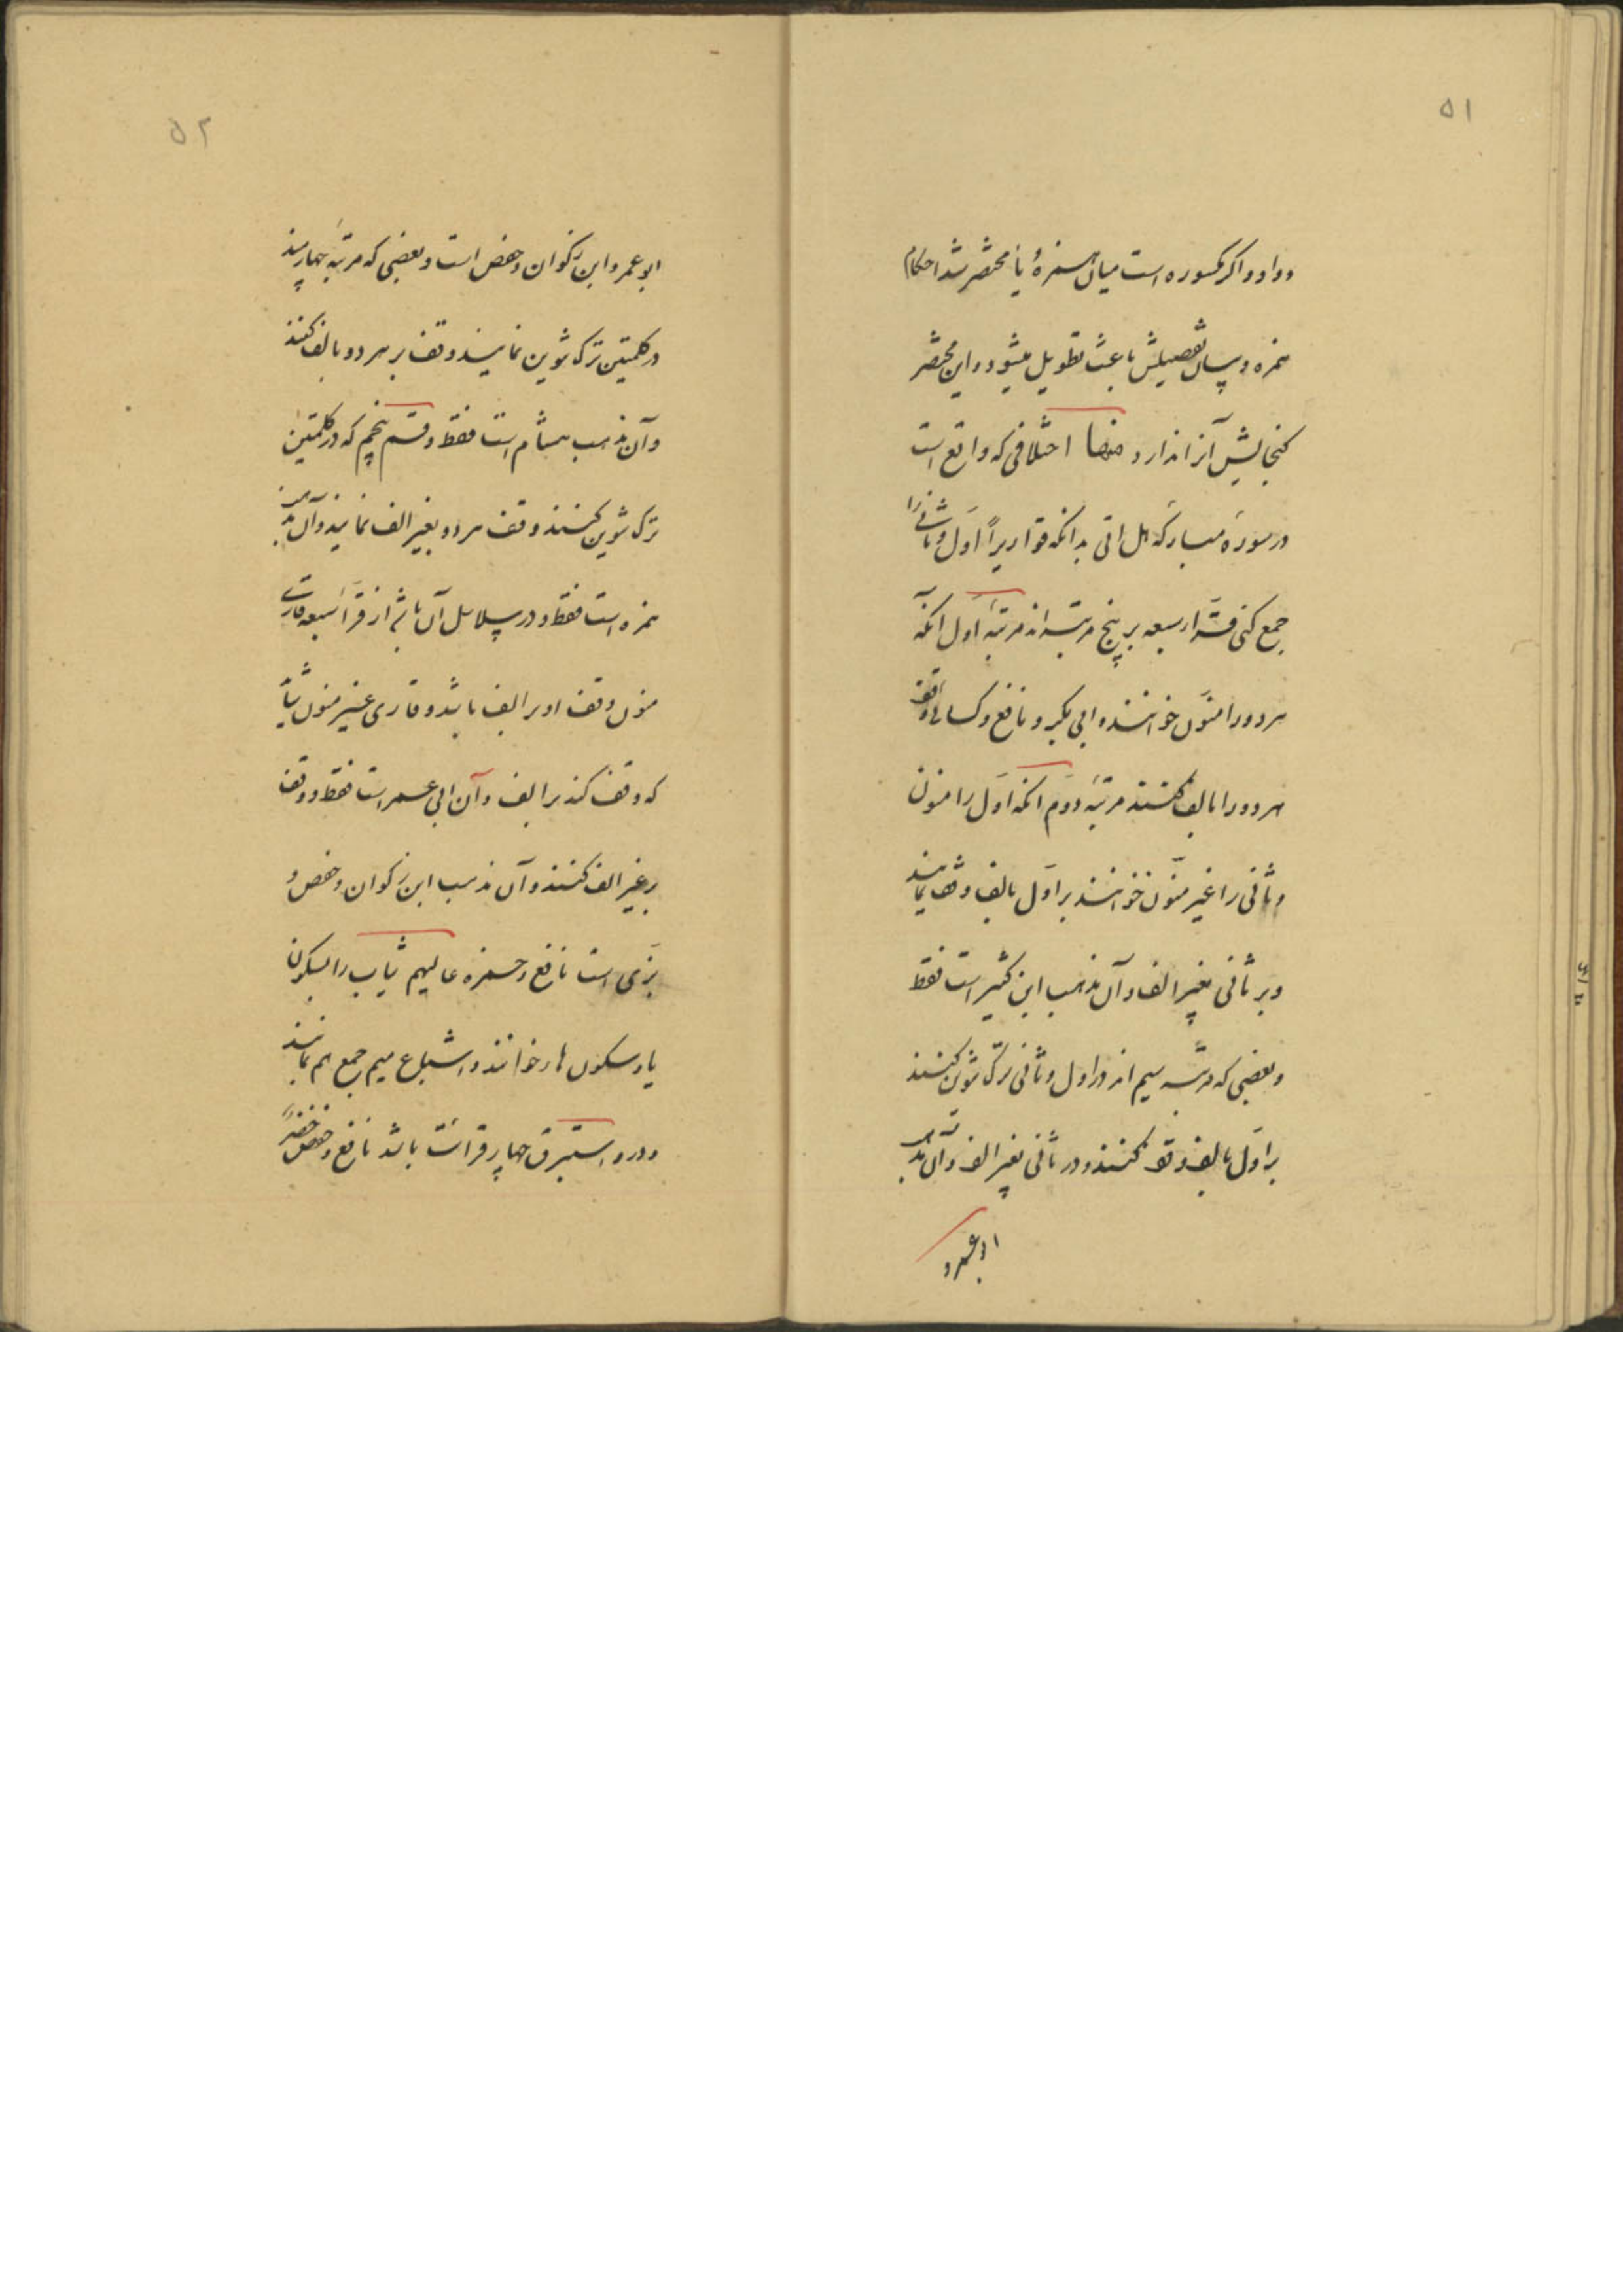 ۵۱
و واو و اگر مکسوره است میان همزهٔ یا مختصر شد احکام
همزه و بیان تفصیلش باعث تطویل میشود و این مختصر
کنجایش آنرا ندارد منها اختلافی که واقع است
در سورهٔ مبارکهٔ هل اتی بدانکه قواریراً اول و ثانی را
جمع کنی قرّاء سبعه بر پنج مرتبه‌اند مرتبهٔ اول انکه
هر دو را منوّن خوانند و ابی بکر و نافع و کسائی وقف
هر دو را بالف کنند مرتبهٔ دوم انکه اول را منون
و ثانی را غیر منوّن خوانند بر اول بالف وقف نمایند
و بر ثانی بغیر الف و آن مذهب ابن کثیر است فقط
و بعضی که مرتبه سیم اند در اول و ثانی ترک تنوین کنند
بر اول بالف وقف کنند و در ثانی بغیر الف و آن مذهب
ابو عمرو
۵۲
ابو عمرو و ابن ذکوان و حفص است و بعضی که مرتبهٔ چهارمند
در کلمتین ترک تنوین نمایند و وقف بر هر دو بالف کنند
و آن مذهب هشام است فقط و قسم پنجم که در کلمتین
ترک تنوین کنند وقف هر دو بغیر الف نمایند و آن مذهب
حمزه است فقط و در سلاسل آن باشد از قرّاء سبعه قاری
منون وقف او بر الف باشد و قاری غیر منون
که وقف کند بر الف و آن ابی عمر است فقط و وقف
بر غیر الف کنند و آن مذهب ابن ذکوان و حفص و
بزّی است نافع و حمزه عالیهم ثیاب را بسکون
یا و سکون ها خوانند و اشباع میم جمع هم نمایند
و در و استبرق چهار قرائت باشد نافع و حفص خضرٌ